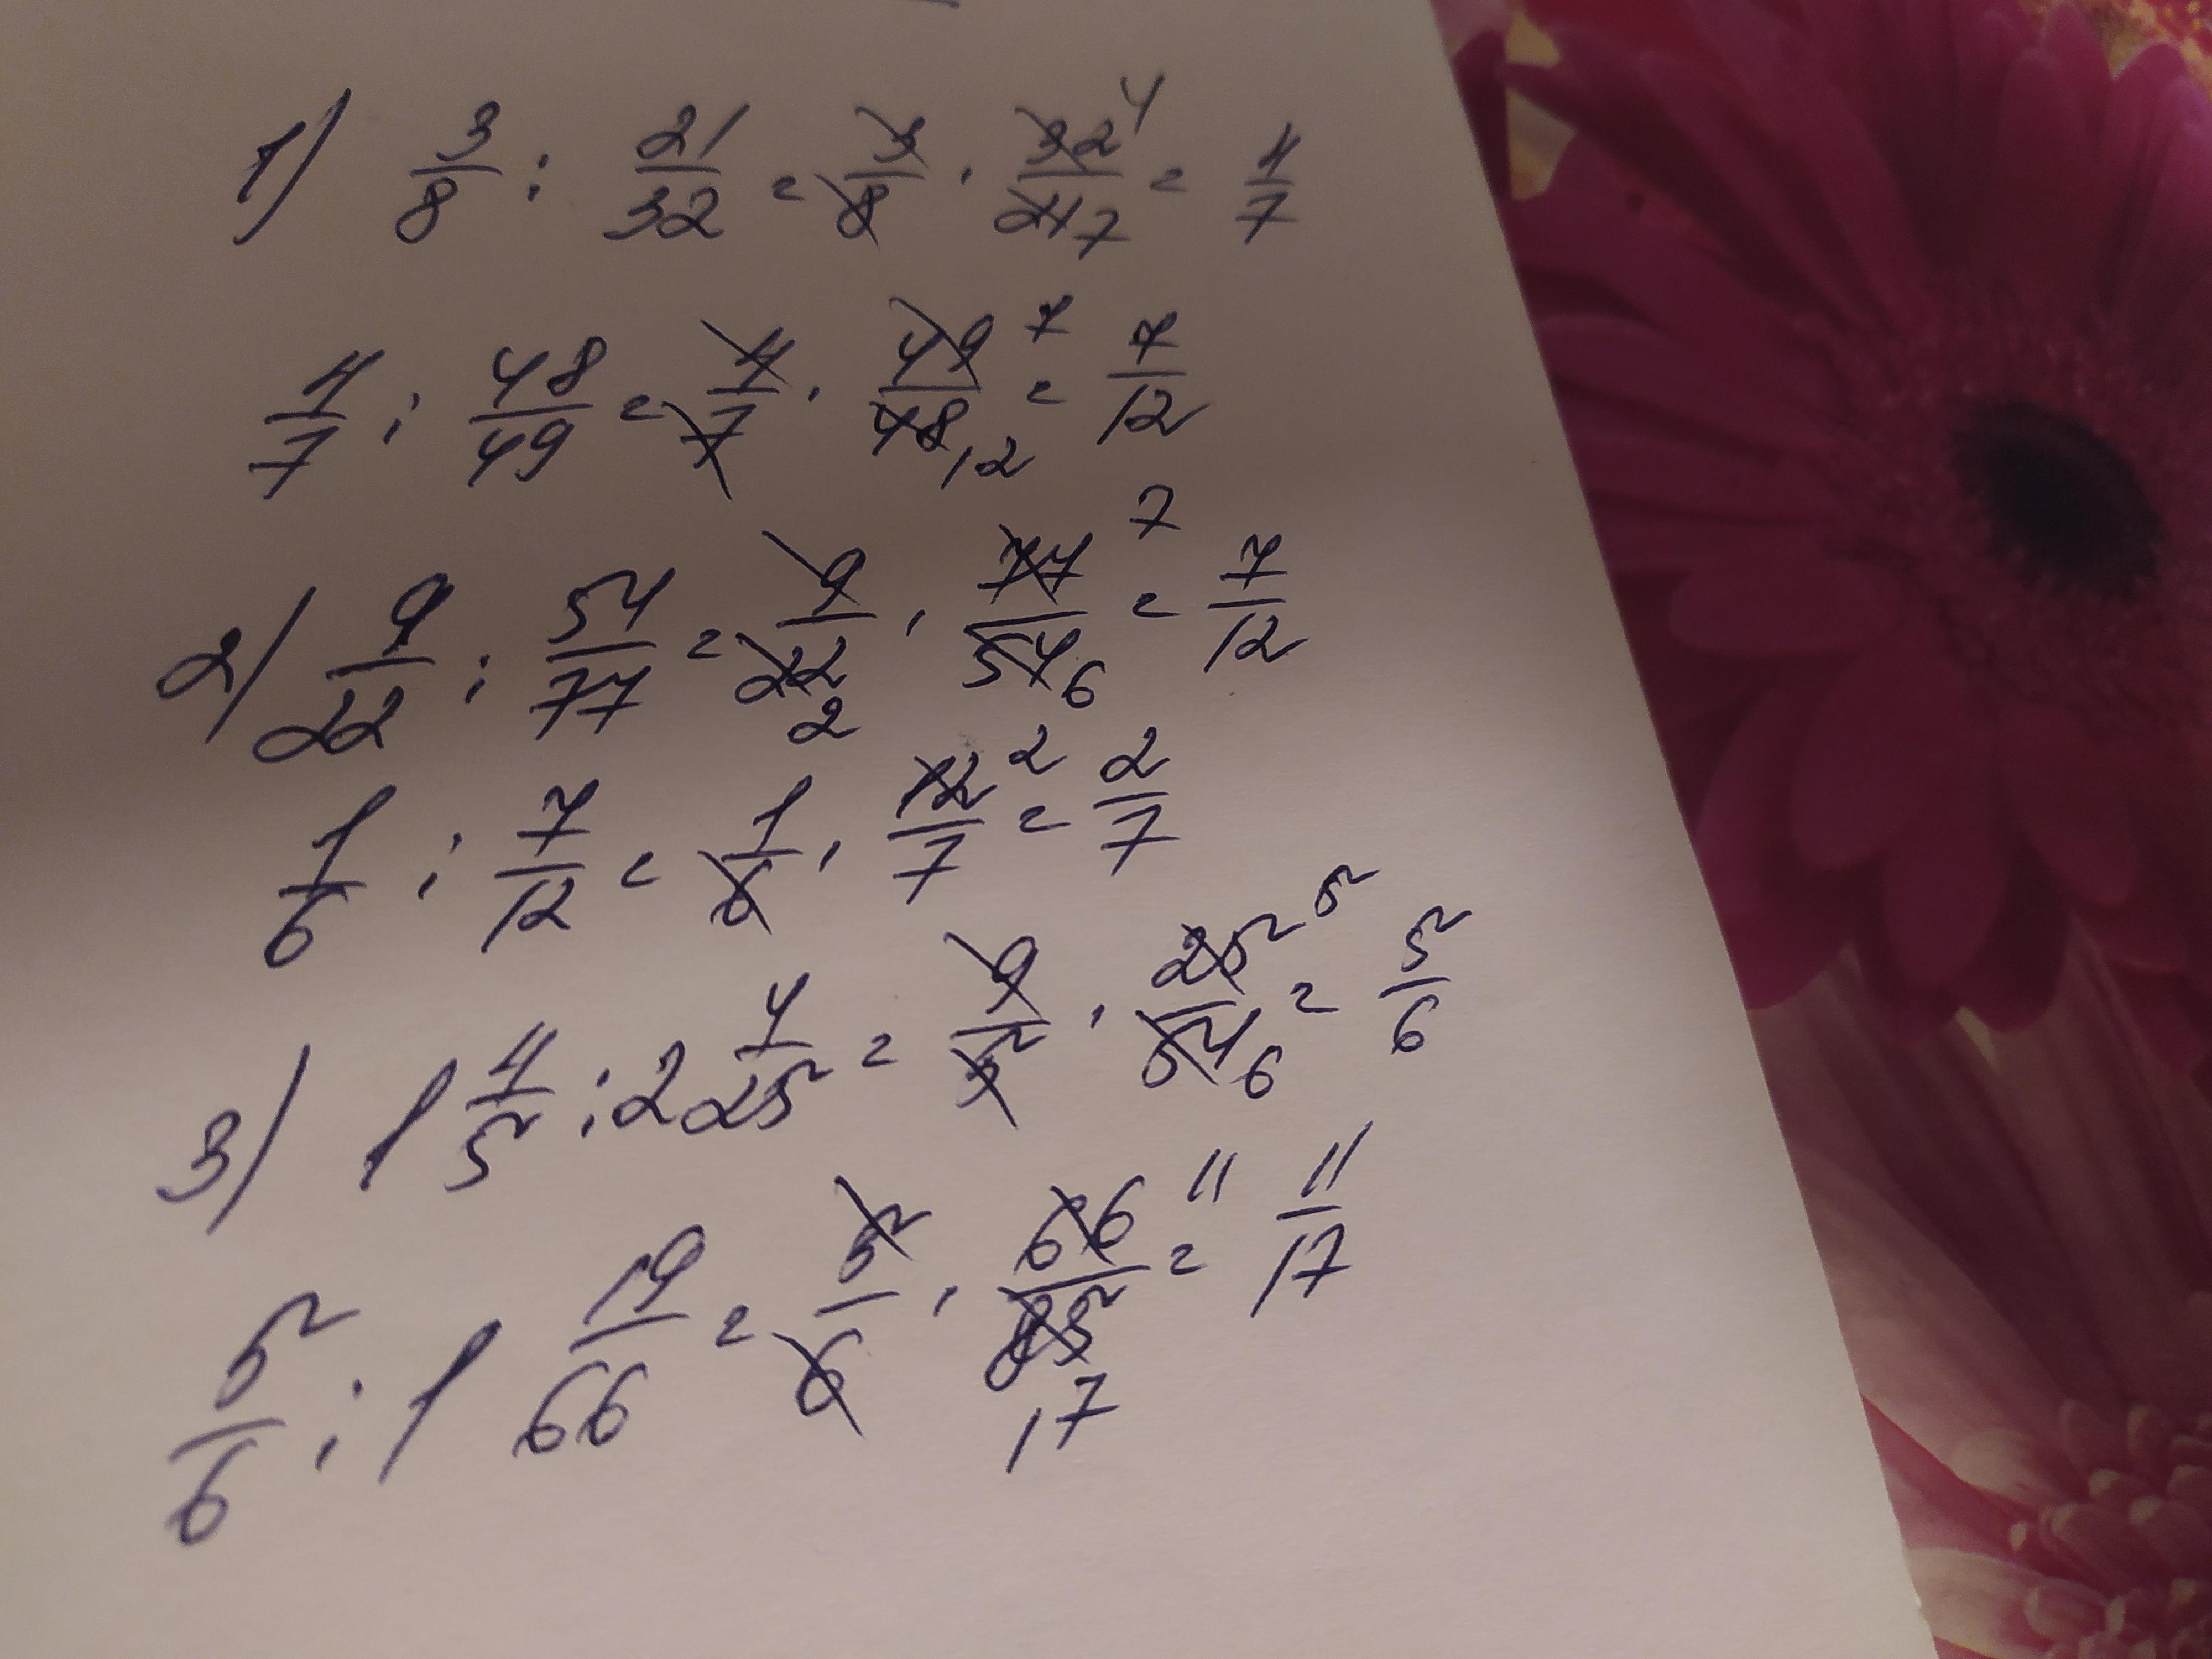 1) 3/8 : 21/32 = 3/8 · 32/21 4 7 = 4/7
4/7 : 48/49 = 4/7 · 49/48 7 12 = 7/12
2) 9/22 : 54/77 = 9/22 2 · 77/54 7 6 = 7/12
1/6 : 7/12 = 1/6 · 12/7 2 = 2/7
3) 1 4/5 : 2 4/25 = 9/5 · 25/54 5 6 = 5/6
5/6 : 1 19/66 = 5/6 · 66/85 11 17 = 11/17